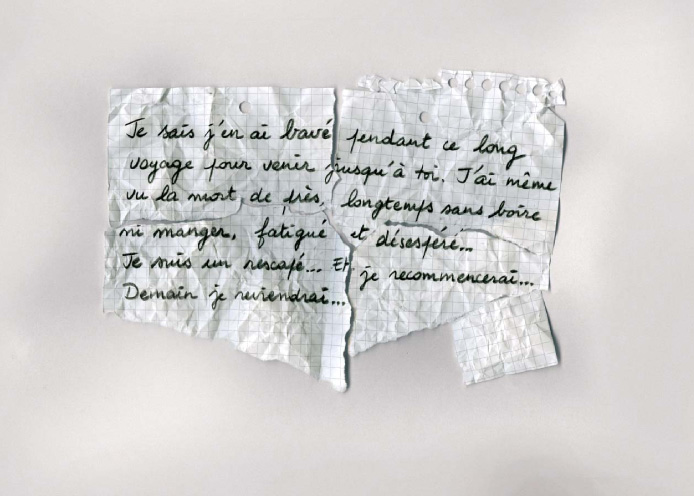 Je sais j'en ai bavé pendant ce long
voyage pour venir jusqu'à toi. J'ai même
vu la mort de près, longtemps sans boire
ni manger, fatigué et désespéré...
Je suis un rescapé... Et je recommencerai...
Demain je reviendrai...